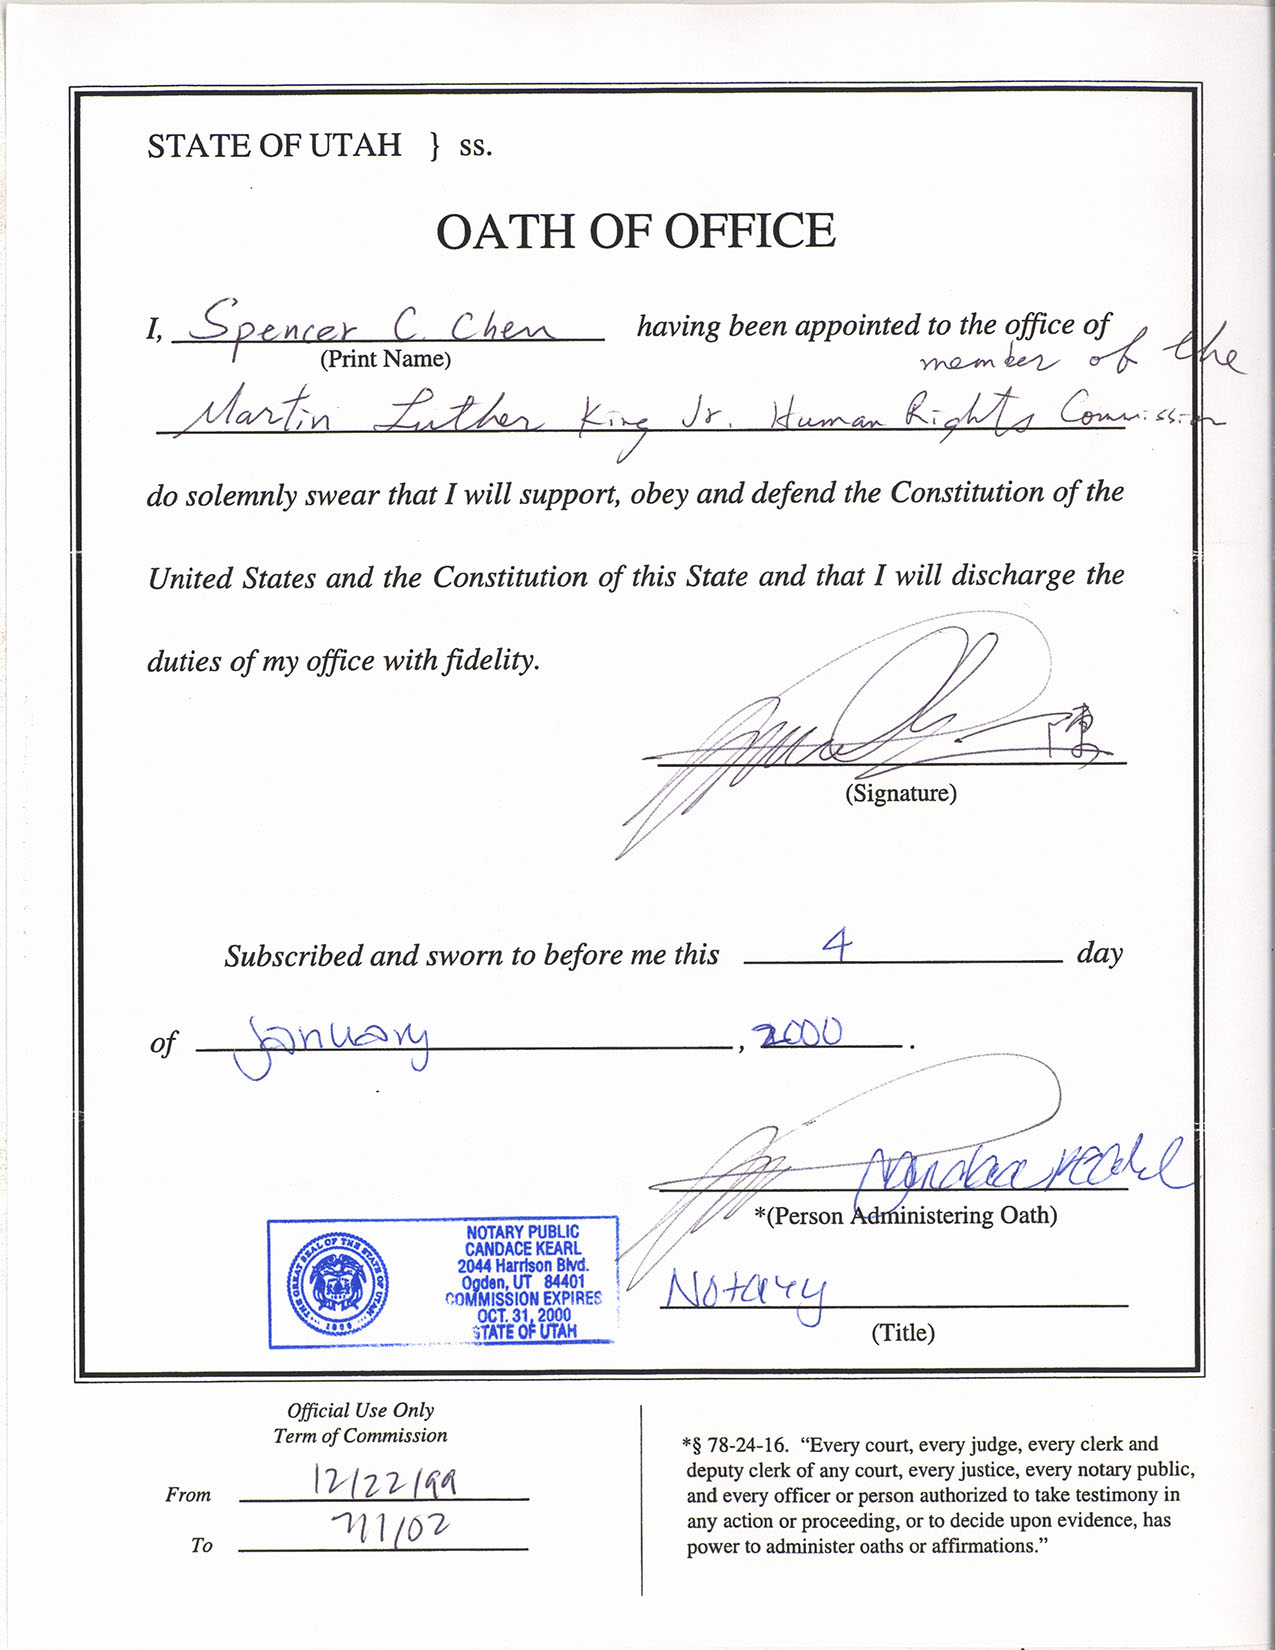 STATE OF UTAH } ss.
OATH OF OFFICE
I, Spencer C. Chen having been appointed to the office of
(Print Name)
member of the
Martin Luther King Jr. Human Rights Commission
do solemnly swear that I will support, obey and defend the Constitution of the
United States and the Constitution of this State and that I will discharge the
duties of my office with fidelity.
陳
(Signature)
Subscribed and sworn to before me this 4 day
of January, 2000.
Candace Kearl
*(Person Administering Oath)
Notary
(Title)
THE GREAT SEAL OF THE STATE OF UTAH
1896
NOTARY PUBLIC
CANDACE KEARL
2044 Harrison Blvd.
Ogden, UT 84401
COMMISSION EXPIRES
OCT. 31, 2000
STATE OF UTAH
Official Use Only
Term of Commission
From 12/22/99
To 7/1/02
*§ 78-24-16. “Every court, every judge, every clerk and
deputy clerk of any court, every justice, every notary public,
and every officer or person authorized to take testimony in
any action or proceeding, or to decide upon evidence, has
power to administer oaths or affirmations.”